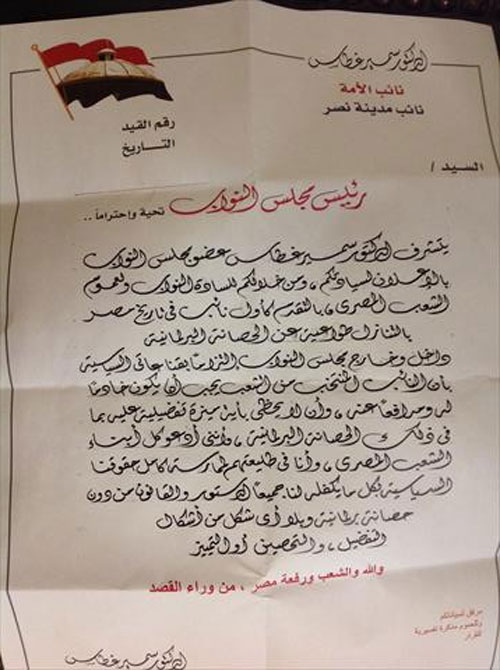 الدكتور سمير غطاس
نائب الأمة
نائب مدينة نصر
رقم القيد
التــاريخ
السيد /
رئيس مجلس النواب تحية وإحتراماً ..
يتشرف الدكتور سمير غطاس عضو مجلس النواب
بالإعلان لسيادتكم ، ومن خلالكم للسادة النواب ولعموم
الشعب المصرى ، بالتقدم كأول نائب فى تاريخ مصر
بالتنازل طواعية عن الحصانة البرلمانية
داخل وخارج مجلس النواب إلتزاماً بقناعاتى السياسية
بأن النائب المنتخب من الشعب يجب أن يكون خادماً
له ومدافعاً عنه ، وأن لا يحظى بأية ميزة تفضيلية عليه بما
فى ذلك الحصانة البرلمانية ، وأننى أدعو كل أبناء
الشعب المصرى ، وأنا فى طليعتهم لممارسة كامل حقوقنا
السياسية بكل ما يكفله لنا جميعاً الدستور والقانون من دون
حصانة برلمانية وبلا أى شكل من أشكال
التفضيل ، والتحصين أو التمييز
والله والشعب ورفعة مصر ، من وراء القصد
مرفق لسيادتكم
وللعموم مذكرة تفسيرية
للقرار
الدكتور سمير غطاس